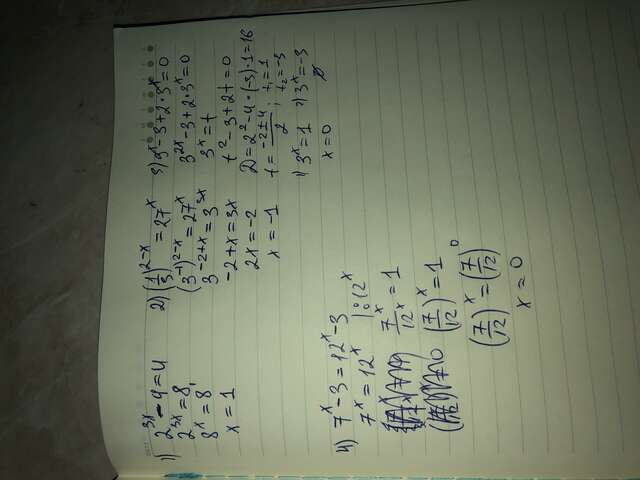 1) 2^{3x} - 4 = 4
2^{3x} = 8
8^x = 8^1
x = 1
2) (1/3)^{2-x} = 27^x
(3^{-1})^{2-x} = 27^x
3^{-2+x} = 3^{3x}
-2+x = 3x
2x = -2
x = -1
3) 9^x - 3 + 2·3^x = 0
3^{2x} - 3 + 2·3^x = 0
3^x = t
t^2 - 3 + 2t = 0
D = 2^2 - 4·(-3)·1 = 16
t = (-2±4)/2 ; t_1 = 1 t_2 = -3
1) 3^x = 1 2) 3^x = -3
x = 0 ∅
4) 7^x - 3 = 12^x - 3
7^x = 12^x |:12^x
7^x/12^x = 1
(7/12)^x = 1
(7/12)^x = (7/12)^0
x = 0